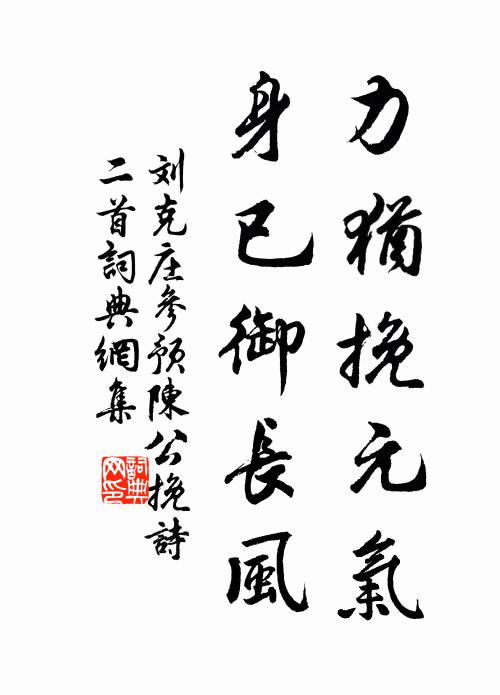 力猶挽元氣
身已御長風
刘克庄參預陳公挽詩
二首詞典網集
詞典網印